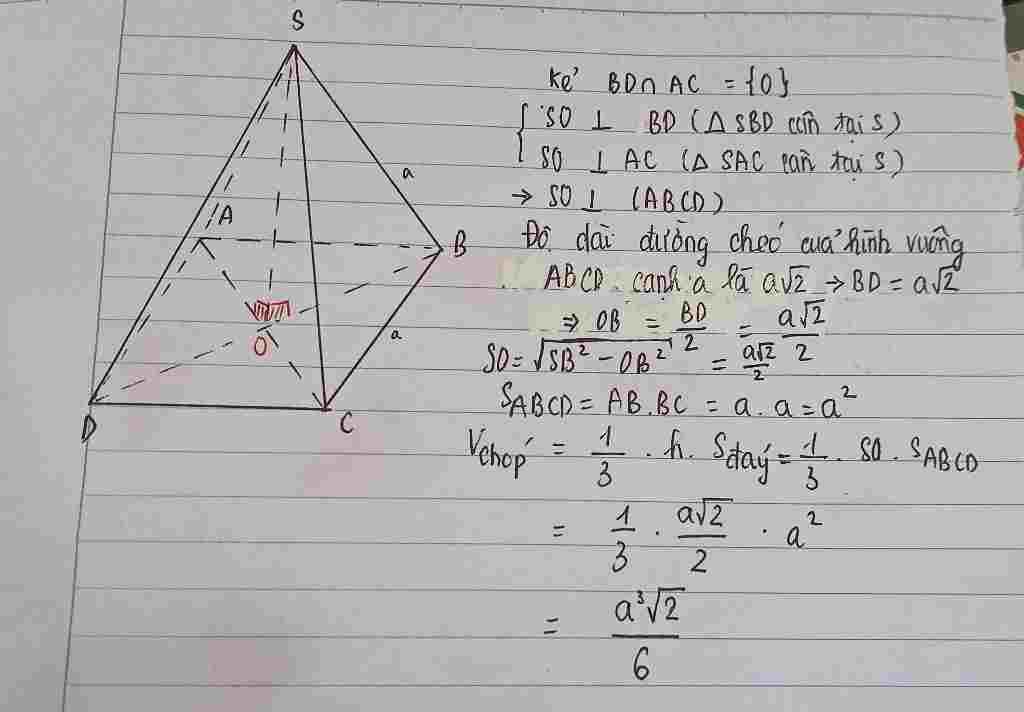 S
A
B
a
a
O
D
C
Kẻ BD∩ AC = {O}
SO ⊥ BD (△ SBD cân tại S)
SO ⊥ AC (△ SAC cân tại S)
→ SO ⊥ (ABCD)
Độ dài đường chéo của hình vuông
ABCD cạnh a là a√2 → BD = a√2
⇒ OB = BD/2 = a√2/2
SO = √(SB² - OB²) = a√2/2
S_ABCD = AB.BC = a.a = a²
V_chóp = 1/3 . h. S_đáy = 1/3 . SO . S_ABCD
= 1/3 . a√2/2 . a²
= a³√2/6